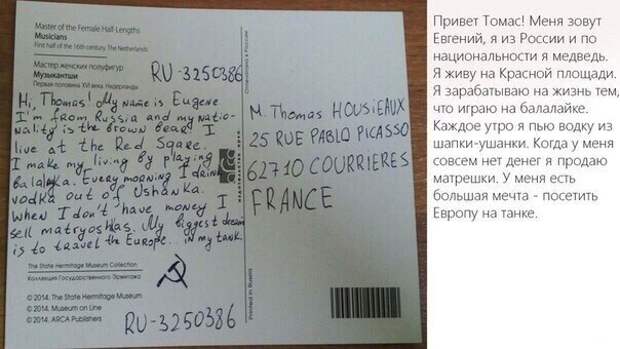 Master of the Female Half-Lengths
Musicians
First half of the 16th century. The Netherlands
Мастер женских полуфигур
Музыкантши
Первая половина XVI века. Нидерланды
RU-3250386
Hi, Thomas! My name is Eugene
I'm from Russia and my natio-
nality is the brown bear. I
live at the Red Sqare.
I make my living by playing
balalaka. Every morning I drink
vodka out of Ushanka.
When I don't have money I
sell matryoshkas. My biggest dream
is to travel the Europe... in my tank.
The State Hermitage Museum Collection
Коллекция Государственного Эрмитажа
© 2014, The State Hermitage Museum
© 2014, Museum on Line
© 2014, ARCA Publishers
RU-3250386
M. Thomas HOUSIEAUX
25 RUE PABLO PICASSO
62710 COURRIERES
FRANCE
Printed in Russia
Привет Томас! Меня зовут
Евгений, я из России и по
национальности я медведь.
Я живу на Красной площади.
Я зарабатываю на жизнь тем,
что играю на балалайке.
Каждое утро я пью водку из
шапки-ушанки. Когда у меня
совсем нет денег я продаю
матрешки. У меня есть
большая мечта - посетить
Европу на танке.